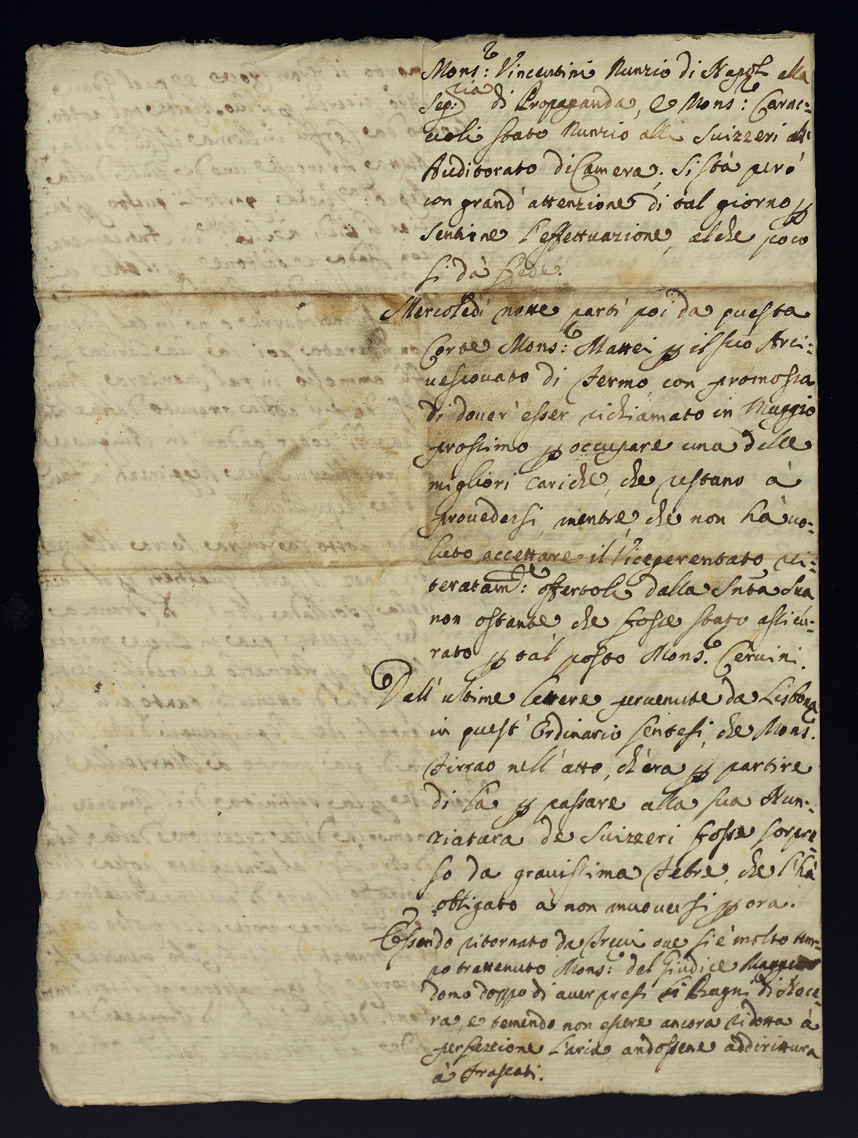 Mons:e Vincentini Nunzio di Napoli alla
Seg:ria di Propaganda, e Mons:e Carac-
cioli stato Nunzio alli Suizzeri all'
Auditorato di Camera. Si stà però
con grand' attenzione di tal giorno p
sentirne l'effettuazione, al che poco
si dà fede.
Mercoledì notte partì poi da questa
Corte Mons:e Mattei p il suo Arci-
uescouato di Fermo, con promossa
di douer' esser richiamato in Maggio
prossimo p occupare una delle
migliori cariche, che restano à
prouedersi, mentre che non hà uo-
luto accettare il Vicegerentato rei-
teratam:te offertoli dalla Sntà Sua
non ostante che fosse stato assicu-
rato p tal posto Mons.e Ceruini.
Dall' ultime lettere peruenute da Lisbona
in quest' Ordinario sentesi, che Mons.
Tirrao nell' atto, ch'era p partire
di là p passare alla sua Nun-
ziatura de Suizzeri fosse sorpre-
so da grauissima febre, che l'hà
obligato à non muouersi p ora.
Essendo ritornato da Treui oue si è molto tem-
po trattenuto Mons:e del Giudice Maggior-
domo doppo di auer presi li Bagni di Noce-
ra, e temendo non essere ancora ridotta à
perfezzione l'aria, andossene addirittura
à Frascati.